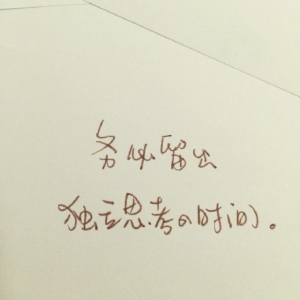 务必留出
独立思考的时间。